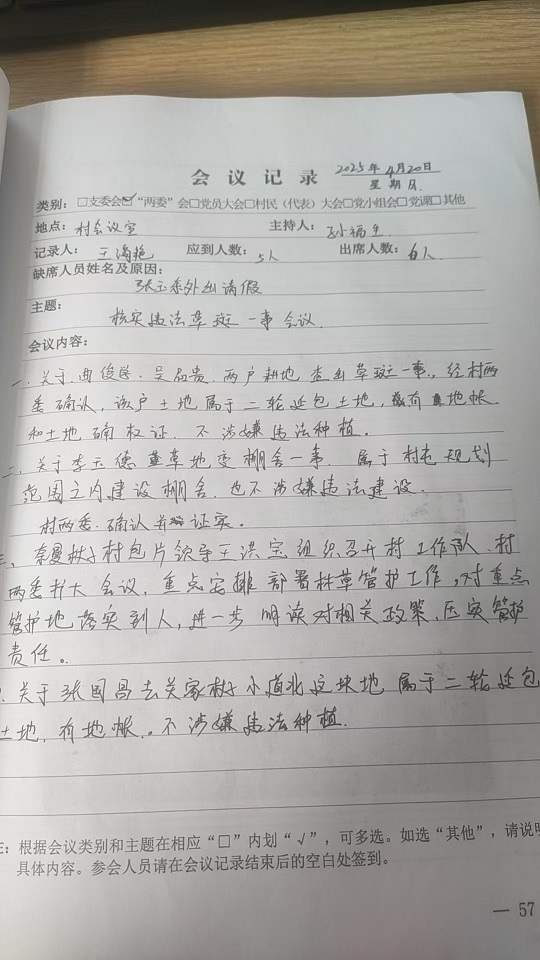 会议记录 2025年4月20日
星期日
类别：□支委会☑“两委”会□党员大会□村民（代表）大会□党小组会□党课□其他
地点：村会议室 主持人：孙福
记录人：王海艳 应到人数：5人 出席人数：人
缺席人员姓名及原因：
张玉 外出请假
主题：
核实违法草斑一事会议.
会议内容：
一、关于 曲俊 、吴 贵、两户耕地 查出草斑一事，经村两
委确认，该户土地属于二轮延包土地，有地帐
和土地确权证，不涉嫌违法种植。
二、关于李玉德 草地变棚舍一事. 属于村屯规划
范围之内建设棚舍，也不涉嫌违法建设.
村两委.确认并 证实。
、奈曼 村包片领导王洪宝组织召开村工作队、村
两委扩大会议，重点安排部署林草管护工作，对重点
管护地落实到人，进一步 解读对相关政策、压实管护
责任。
. 关于张国昌去关家 小道北这块地 属于二轮延包
土地，有地帐。不涉嫌违法种植.
：根据会议类别和主题在相应“□”内划“√”，可多选。如选“其他”，请说明
具体内容。参会人员请在会议记录结束后的空白处签到。
— 57